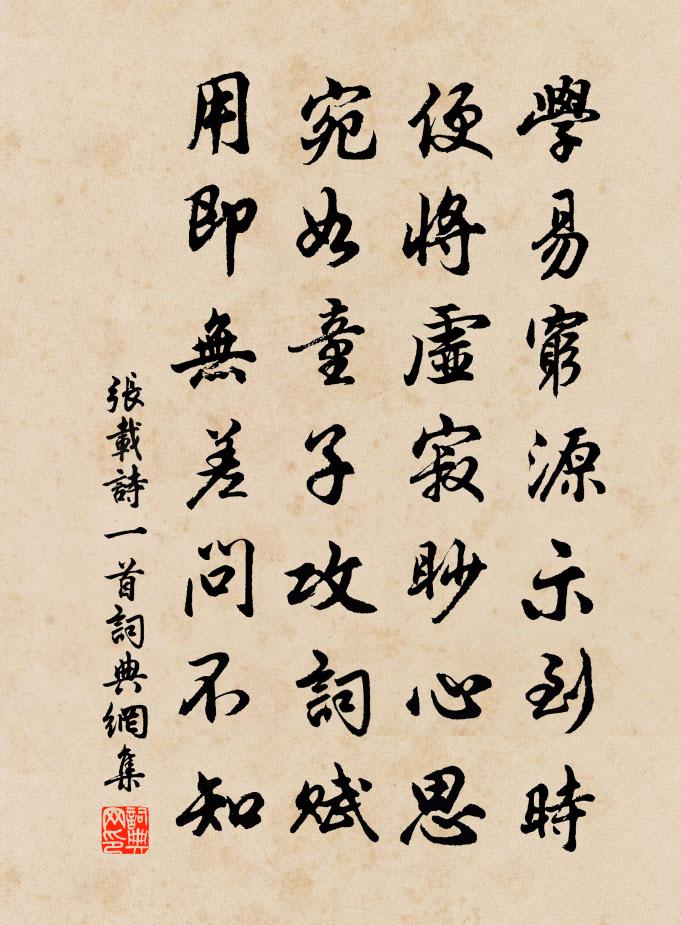 學易窮源示到時
便將虛寂眇心思
宛如童子攻詞賦
用即無差問不知
張載詩一首詞典網集
詞典網印